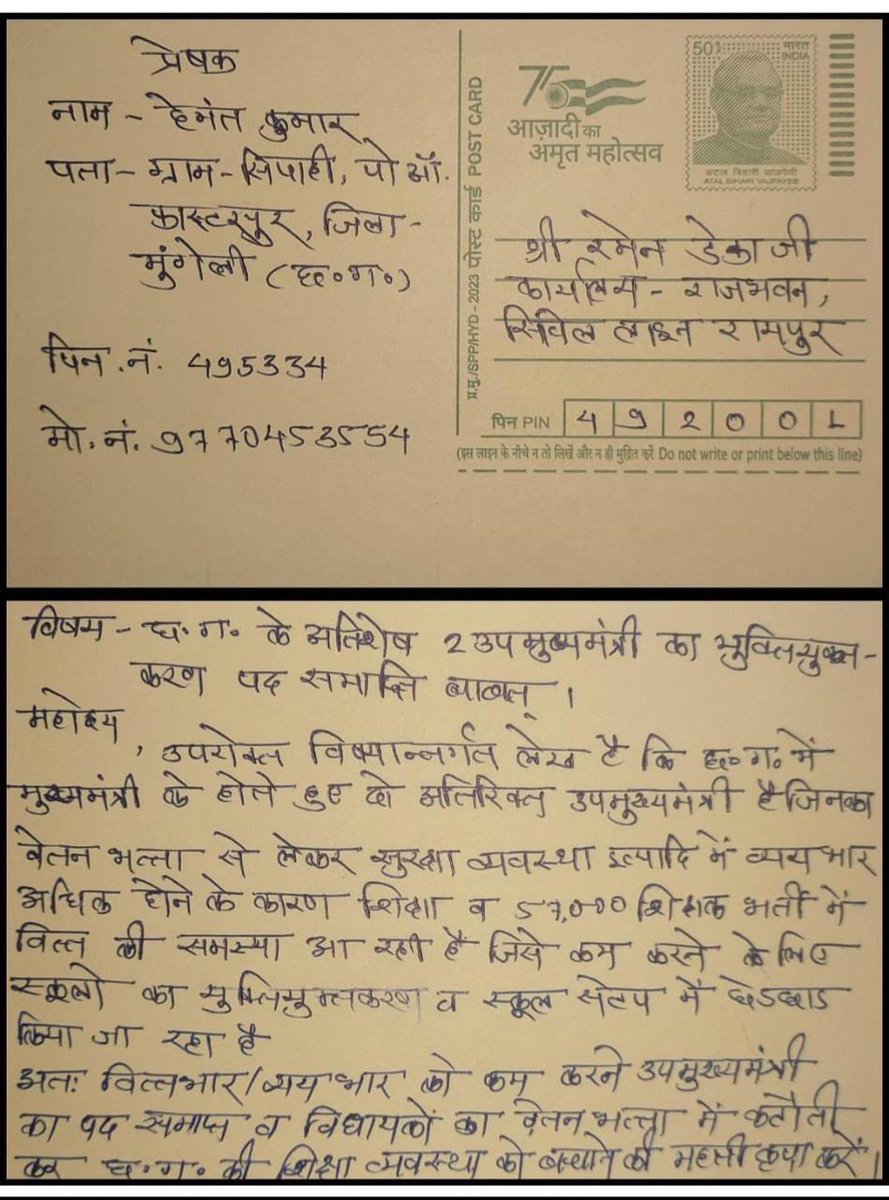 प्रेषक
नाम - हेमंत कुमार
पता - ग्राम - सिपाही, पो ऑ.
फास्टरपुर, जिला -
मुंगेली (छ०ग०)
पिन.नं. 495334
मो.नं. 9770453554
प्र.मु./SPP/HYD - 2023 पोस्ट कार्ड POST CARD
75
आज़ादी का
अमृत महोत्सव
50 भारत
INDIA
अटल बिहारी वाजपेयी
ATAL BIHARI VAJPAYEE
श्री रमेन डेका जी
कार्यालय - राजभवन,
सिविल लाइन रायपुर
पिन PIN 4 9 2 0 0 1
(इस लाइन के नीचे न तो लिखें और न ही मुद्रित करें Do not write or print below this line)
विषय - छ.ग. के अतिशेष 2 उपमुख्यमंत्री का युक्तियुक्त-
करण पद समाप्ति बाबत् ।
महोदय
, उपरोक्त विषयान्तर्गत लेख है कि छ०ग० में
मुख्यमंत्री के होते हुए दो अतिरिक्त उपमुख्यमंत्री है जिनका
वेतन भत्ता से लेकर सुरक्षा व्यवस्था इत्यादि में व्यय भार
अधिक होने के कारण शिक्षा व 57,000 शिक्षक भर्ती में
वित्त की समस्या आ रही है जिसे कम करने के लिए
स्कूलो का युक्तियुक्तकरण व स्कूल सेटप में छेडछाड
किया जा रहा है
अतः वित्तभार/व्यय भार को कम करने उपमुख्यमंत्री
का पद समाप्त व विधायकों का वेतन भत्ता में कटौती
कर छ.ग. की शिक्षा व्यवस्था को बचाने की महती कृपा करें।